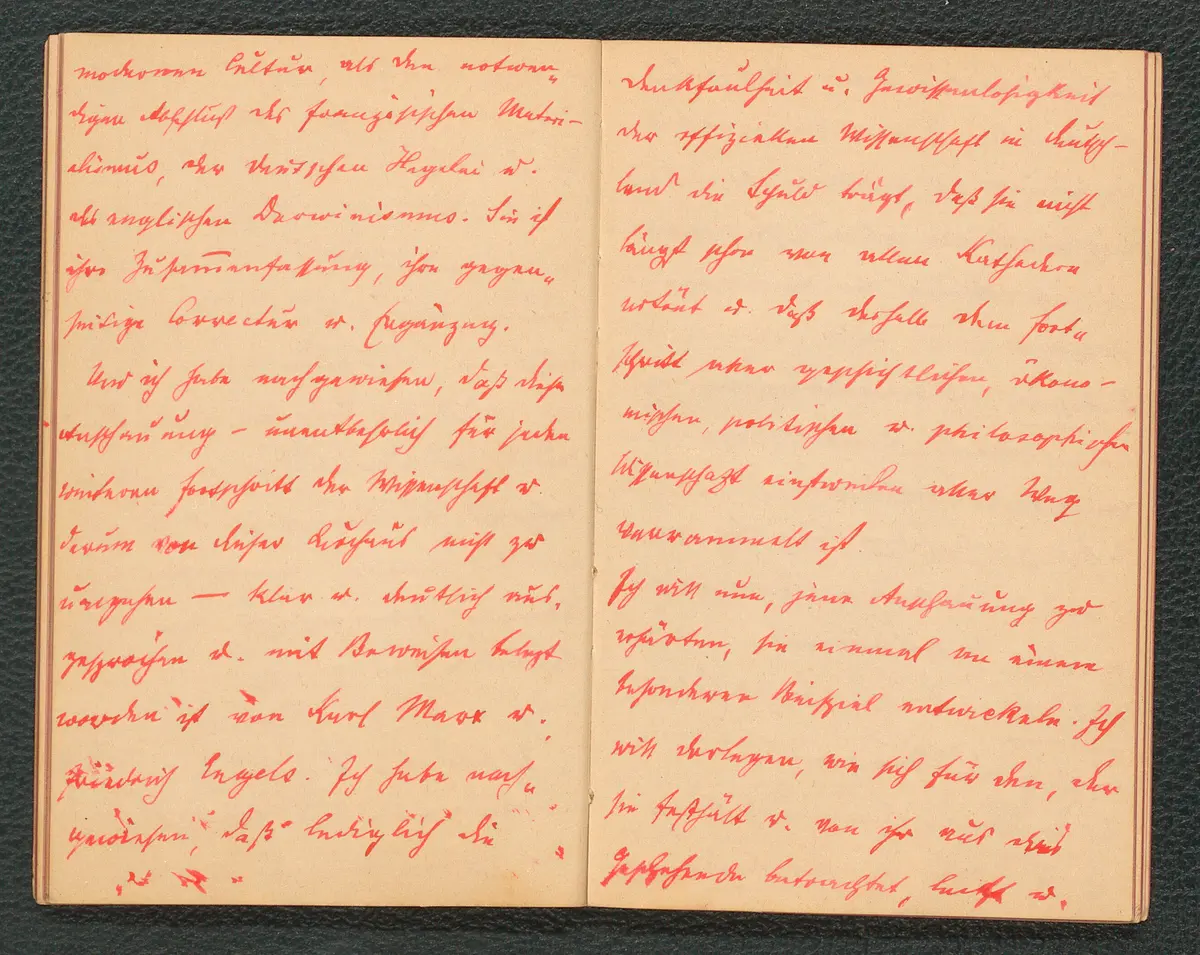 modernen Cultur, als den notwen„
digen Abschluß des französischen Materi-
alismus, der deutschen Hegelei u.
des englischen Darwinismus. Sie ist
ihre Zusammenfassung, ihre gegen„
seitige Correctur u. Ergänzung.
Und ich habe nachgewiesen, daß diese
Anschauung – unentbehrlich für jeden
weiteren Fortschritt der Wissenschaft u.
darum von dieser durchaus nicht zu
umgehen — klar u. deutlich aus„
gesprochen u. mit Beweisen belegt
worden ist von Karl Marx u.
Friedrich Engels. Ich habe nach„
gewiesen, daß lediglich die
Denkfaulheit u. Gewissenlosigkeit
der offiziellen Wissenschaft in Deutsch-
land die Schuld trägt, daß sie nicht
längst schon von allen Kathedern
ertönt u. daß deshalb dem Fort„
schritt aller geschichtlichen, ökono-
mischen, politischen u. philosophischen
Wissenschaft einstweilen aller Weg
verrammelt ist
Ich will nun, jene Anschauung zu
erhärten, sie einmal an einem
besonderen Beispiel entwickeln. Ich
will darlegen, wie sich für den, der
sie festhält u. von ihr aus das
Geschehende betrachtet, u.